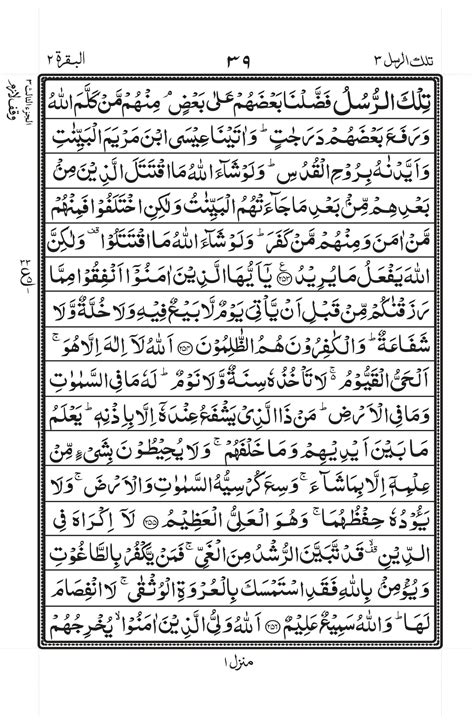 تلك الرسل ٣ ٣٩ البقرة ٢
تِلْكَ الرُّسُلُ فَضَّلْنَا بَعْضَهُمْ عَلٰی بَعْضٍ ۘ مِنْهُمْ مَّنْ كَلَّمَ اللهُ
وَرَفَعَ بَعْضَهُمْ دَرَجٰتٍ ؕ وَاٰتَيْنَا عِيْسَی ابْنَ مَرْيَمَ الْبَيِّنٰتِ
وَاَيَّدْنٰهُ بِرُوْحِ الْقُدُسِ ؕ وَلَوْ شَآءَ اللهُ مَا اقْتَتَلَ الَّذِيْنَ مِنْۢ
بَعْدِهِمْ مِّنْۢ بَعْدِ مَا جَآءَتْهُمُ الْبَيِّنٰتُ وَلٰكِنِ اخْتَلَفُوْا فَمِنْهُمْ
مَّنْ اٰمَنَ وَمِنْهُمْ مَّنْ كَفَرَ ؕ وَلَوْ شَآءَ اللهُ مَا اقْتَتَلُوْا ۟ وَلٰكِنَّ
اللهَ يَفْعَلُ مَا يُرِيْدُ ﴿۲۵۳﴾ يٰۤاَيُّهَا الَّذِيْنَ اٰمَنُوْۤا اَنْفِقُوْا مِمَّا
رَزَقْنٰكُمْ مِّنْ قَبْلِ اَنْ يَّاْتِیَ يَوْمٌ لَّا بَيْعٌ فِيْهِ وَلَا خُلَّةٌ وَّلَا
شَفَاعَةٌ ؕ وَالْكٰفِرُوْنَ هُمُ الظّٰلِمُوْنَ ﴿۲۵۴﴾ اَللهُ لَاۤ اِلٰهَ اِلَّا هُوَ ۚ
اَلْحَیُّ الْقَيُّوْمُ ۚ لَا تَاْخُذُهٗ سِنَةٌ وَّلَا نَوْمٌ ؕ لَهٗ مَا فِی السَّمٰوٰتِ
وَمَا فِی الْاَرْضِ ؕ مَنْ ذَا الَّذِیْ يَشْفَعُ عِنْدَهٗۤ اِلَّا بِاِذْنِهٖ ؕ يَعْلَمُ
مَا بَيْنَ اَيْدِيْهِمْ وَمَا خَلْفَهُمْ ۚ وَلَا يُحِيْطُوْنَ بِشَیْءٍ مِّنْ
عِلْمِهٖۤ اِلَّا بِمَا شَآءَ ۚ وَسِعَ كُرْسِيُّهُ السَّمٰوٰتِ وَالْاَرْضَ ۚ وَلَا
يَئُوْدُهٗ حِفْظُهُمَا ۚ وَهُوَ الْعَلِیُّ الْعَظِيْمُ ﴿۲۵۵﴾ لَاۤ اِكْرَاهَ فِی
الدِّيْنِ ۟ قَدْ تَّبَيَّنَ الرُّشْدُ مِنَ الْغَیِّ ۚ فَمَنْ يَّكْفُرْ بِالطَّاغُوْتِ
وَيُؤْمِنْۢ بِاللهِ فَقَدِ اسْتَمْسَكَ بِالْعُرْوَةِ الْوُثْقٰی ۚ لَا انْفِصَامَ
لَهَا ؕ وَاللهُ سَمِيْعٌ عَلِيْمٌ ﴿۲۵۶﴾ اَللهُ وَلِیُّ الَّذِيْنَ اٰمَنُوْا ۙ يُخْرِجُهُمْ
منزل ١
الجزء الثالث ٣
وقف لازم